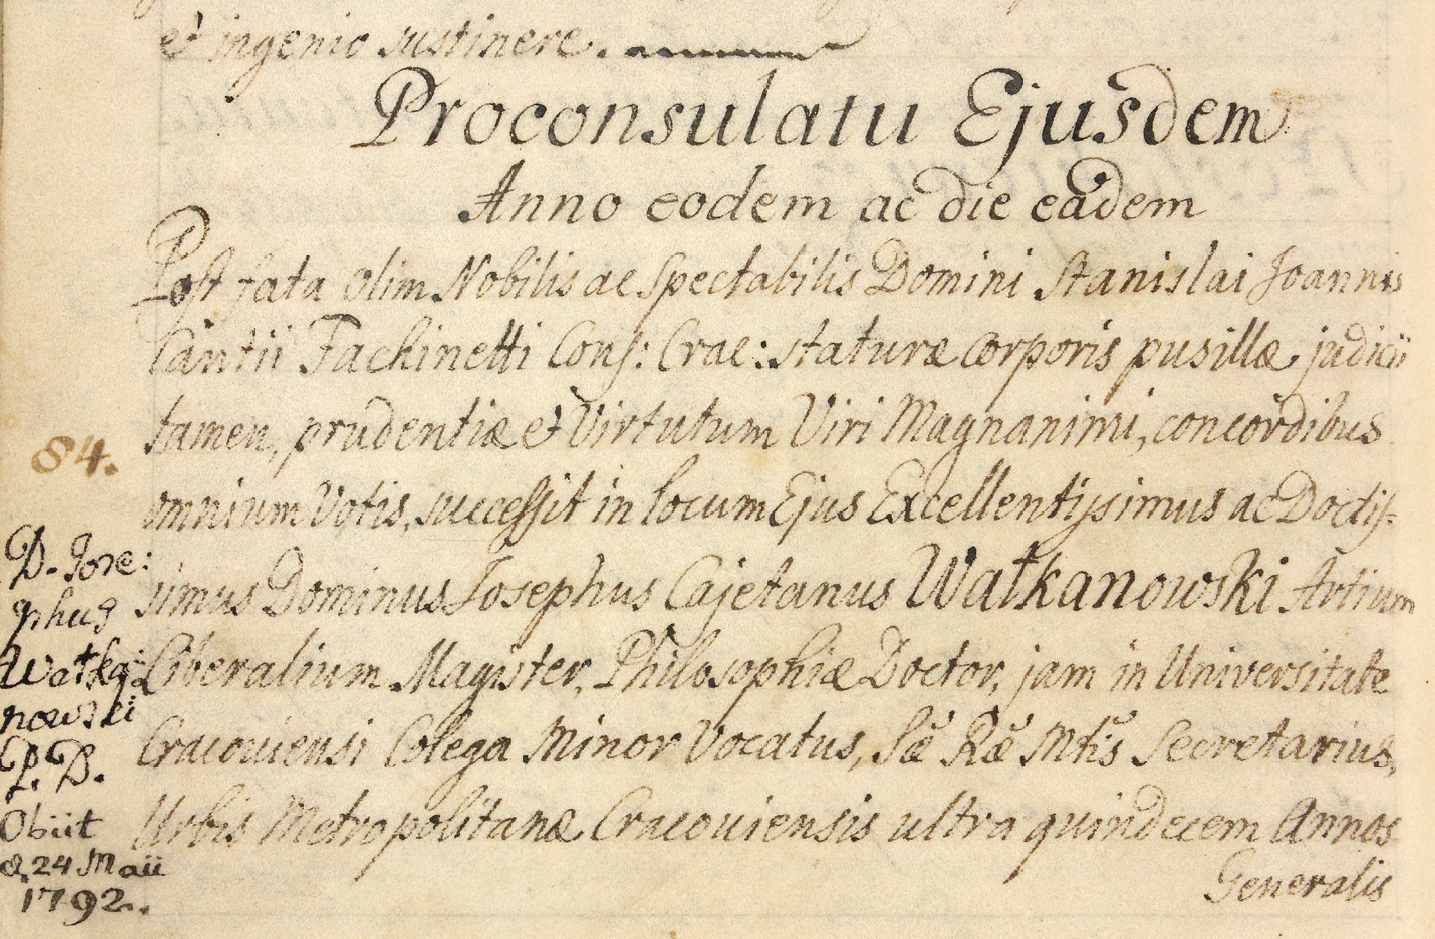 et ingenio sustinere.
Proconsulatu Ejusdem
Anno eodem ac die eadem
Post fata olim Nobilis ac Spectabilis Domini Stanislai Joannis
Cantii Fachinetti Cons: Crac: staturæ corporis pusillæ judicii
tamen, prudentiæ et Virtutum Viri Magnanimi, concordibus
omnium Votis, successit in locum Ejus Excellentissimus ac Doctis-
simus Dominus Josephus Cajetanus Wałkanowski Artium
Liberalium Magister, Philosophiæ Doctor, jam in Universitate
Cracoviensi Colega Minor Vocatus, Sæ Ræ Mtis Secretarius,
Urbis Metropolitanæ Cracoviensis ultra quindecem Annos
Generalis
84.
D. Jose:
phus
Wałka:
nowski
P. D.
Obiit
d. 24 Maii
1792.